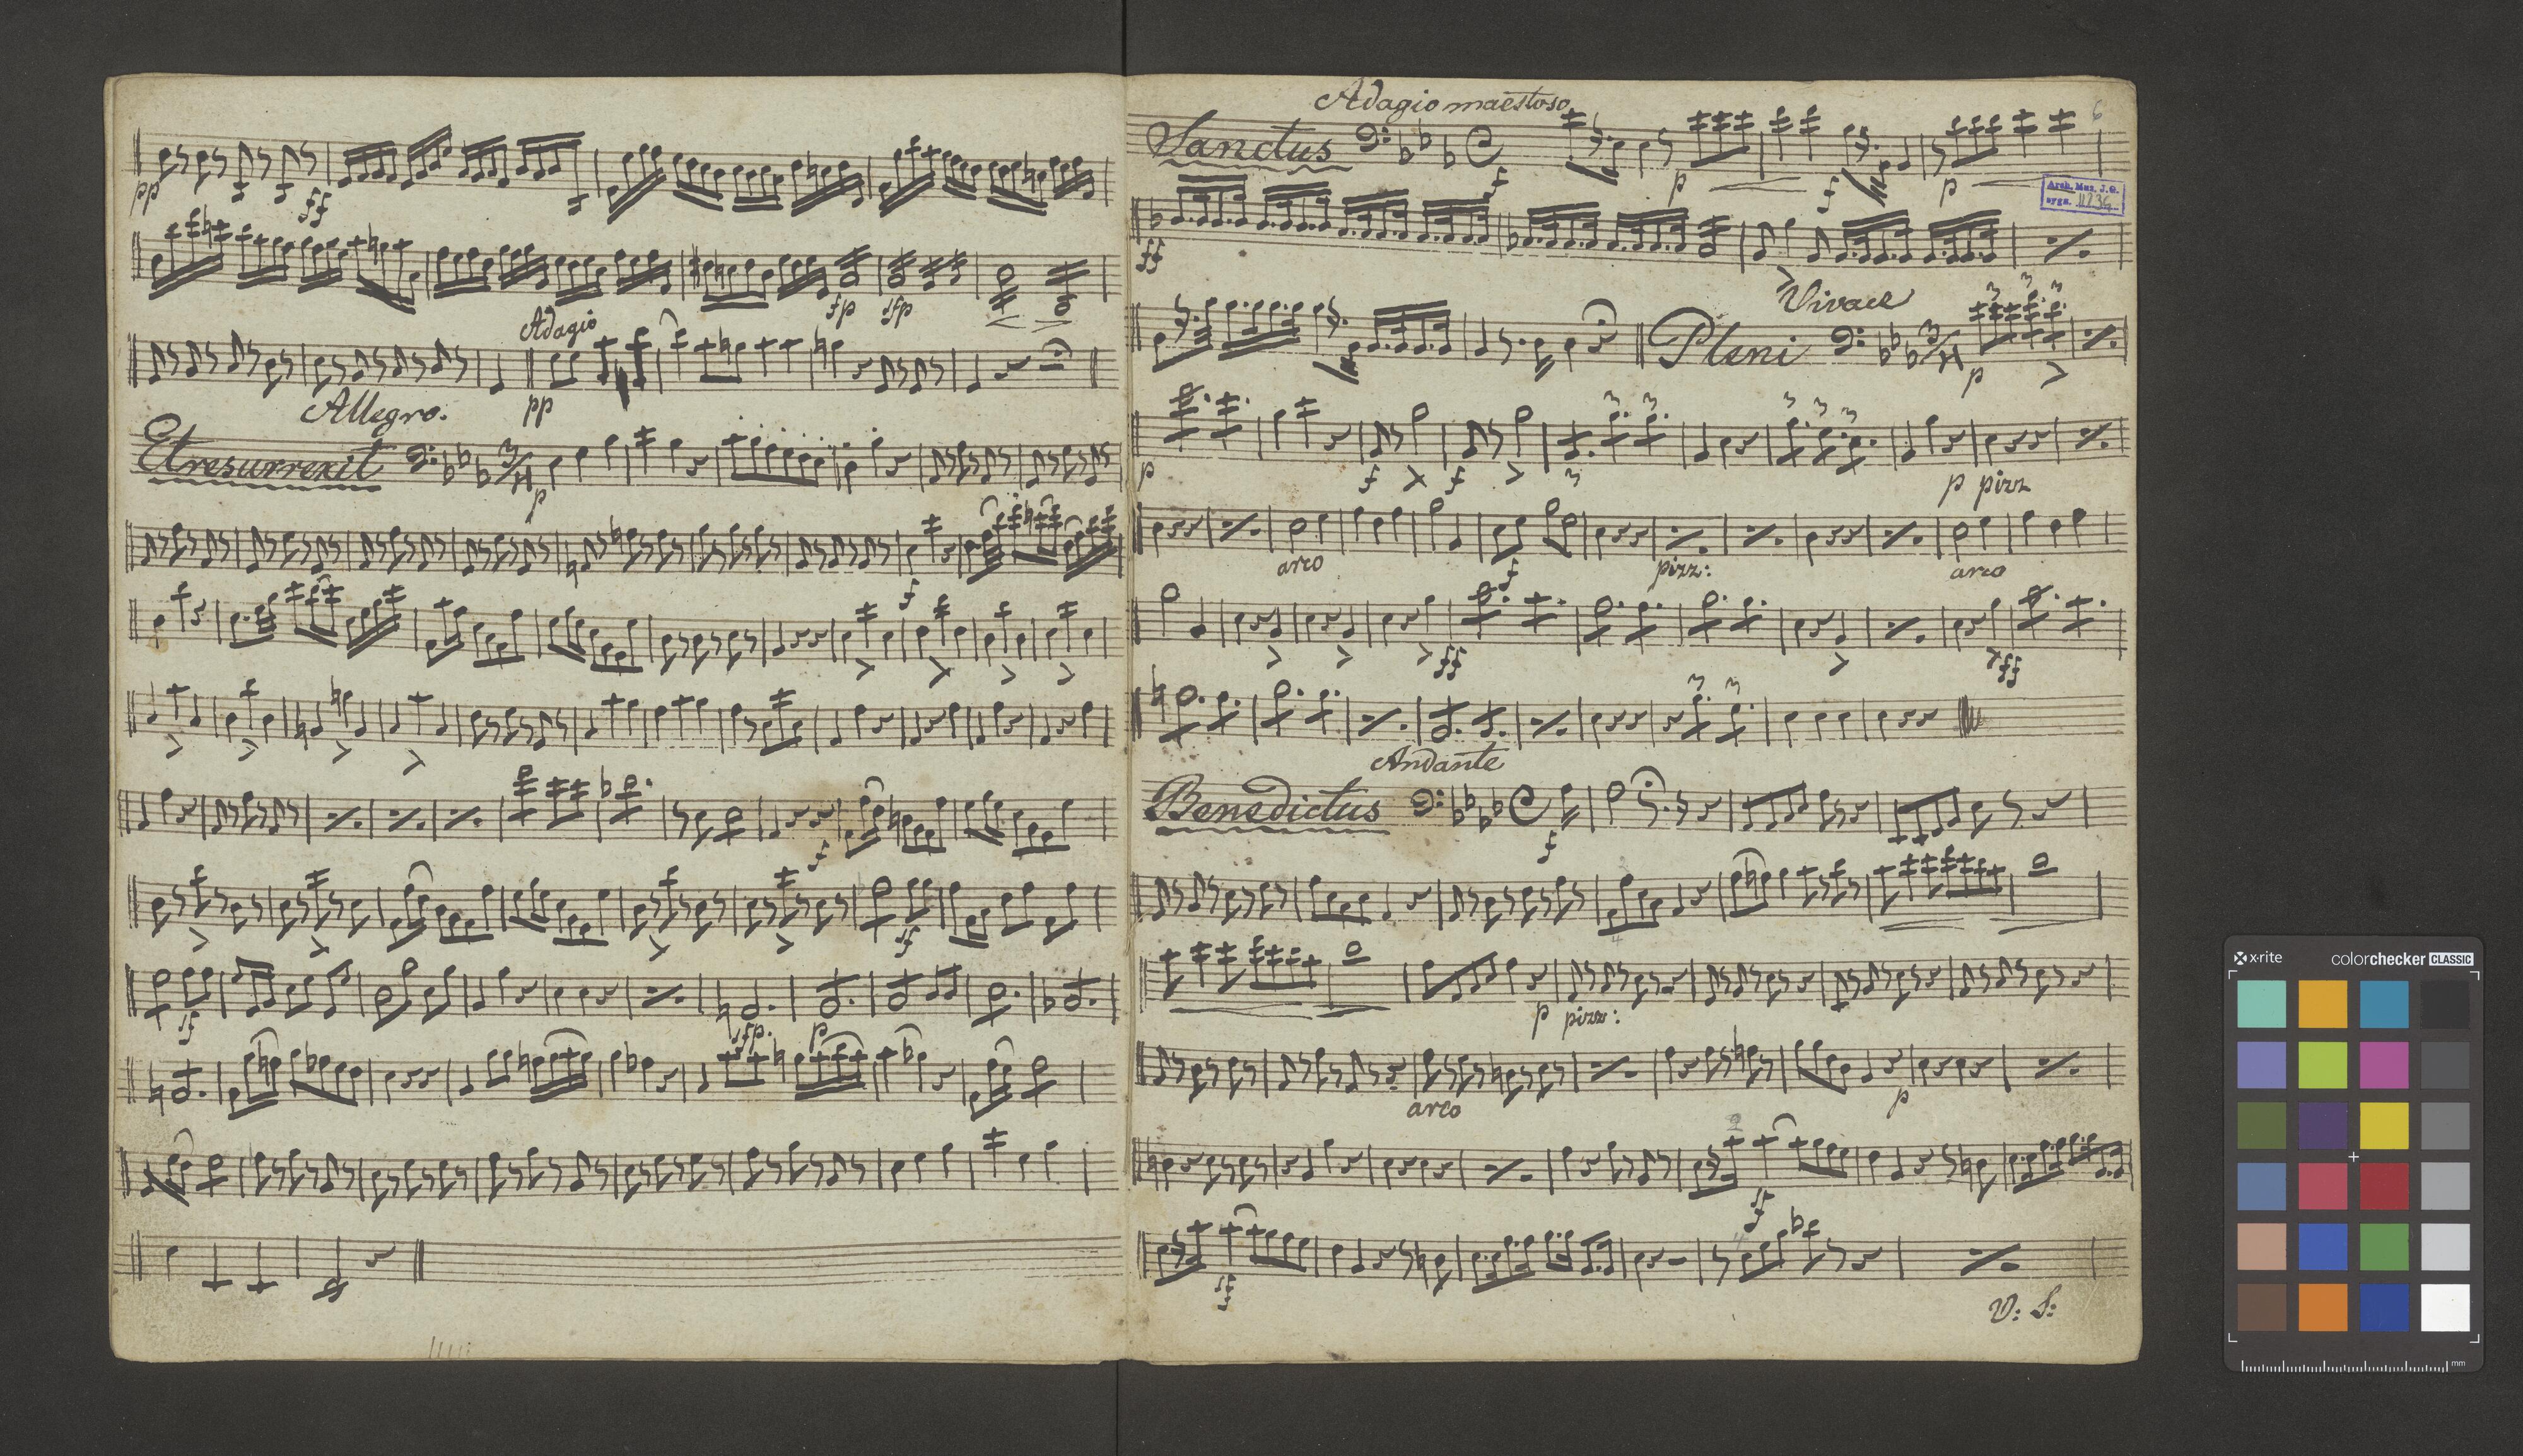 pp
ff
fp
sfp
Adagio
pp
Allegro.
Et resurrexit
3/4
p
f
f
sf
sf
sfp.
p
Adagio maestoso
6
Sanctus
f
p
f
p
Arch. Muz. J.G.
sygn. II 234
ff
Vivace
Pleni
3/4
p
3
3
3
p
f
f
3
3
3
3
3
3
p pizz
arco
f
pizz:
arco
ff
ff
3
3
Andante
Benedictus
f
4
p pizz:
arco
p
2
sf
sf
4
V: S:
x-rite
colorchecker CLASSIC
mm